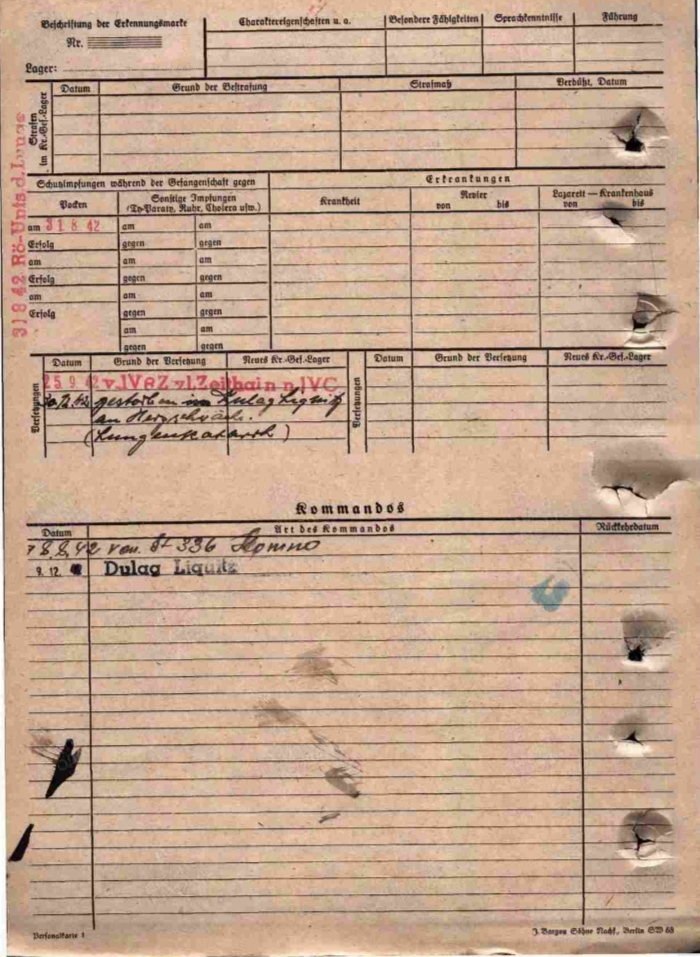 Beschriftung der Erkennungsmarke
Nr.
Lager:
Charaktereigenschaften u. a.
Besondere Fähigkeiten
Sprachkenntnisse
Führung
Strafen im Kr.-Gef.-Lager
Datum
Grund der Bestrafung
Strafmaß
Verbüßt, Datum
31 8 42 Rö-Unts d. Lunge
Schutzimpfungen während der Gefangenschaft gegen
Erkrankungen
Pocken
Sonstige Impfungen
(Ty-Paraty, Ruhr, Cholera usw.)
Krankheit
Revier
von bis
Lazarett — Krankenhaus
von bis
am 31 8. 42 am am
Erfolg gegen gegen
am am am
Erfolg gegen gegen
am am am
Erfolg gegen gegen
am am
gegen gegen
Versetzungen
Datum
Grund der Versetzung
Neues Kr.-Gef.-Lager
Versetzungen
Datum
Grund der Versetzung
Neues Kr.-Gef.-Lager
25. 9. 42 v. IV A Z v. l. Zeithain n. IV C
gestorben im Dulag
an Herzschwäch.
(Lungenkatarrh)
Kommandos
Datum
Art des Kommandos
Rückkehrdatum
8.42 von St 336
9. 12. Dulag
Personalkarte 1
J. Bargou Söhne Nachf., Berlin SW 68